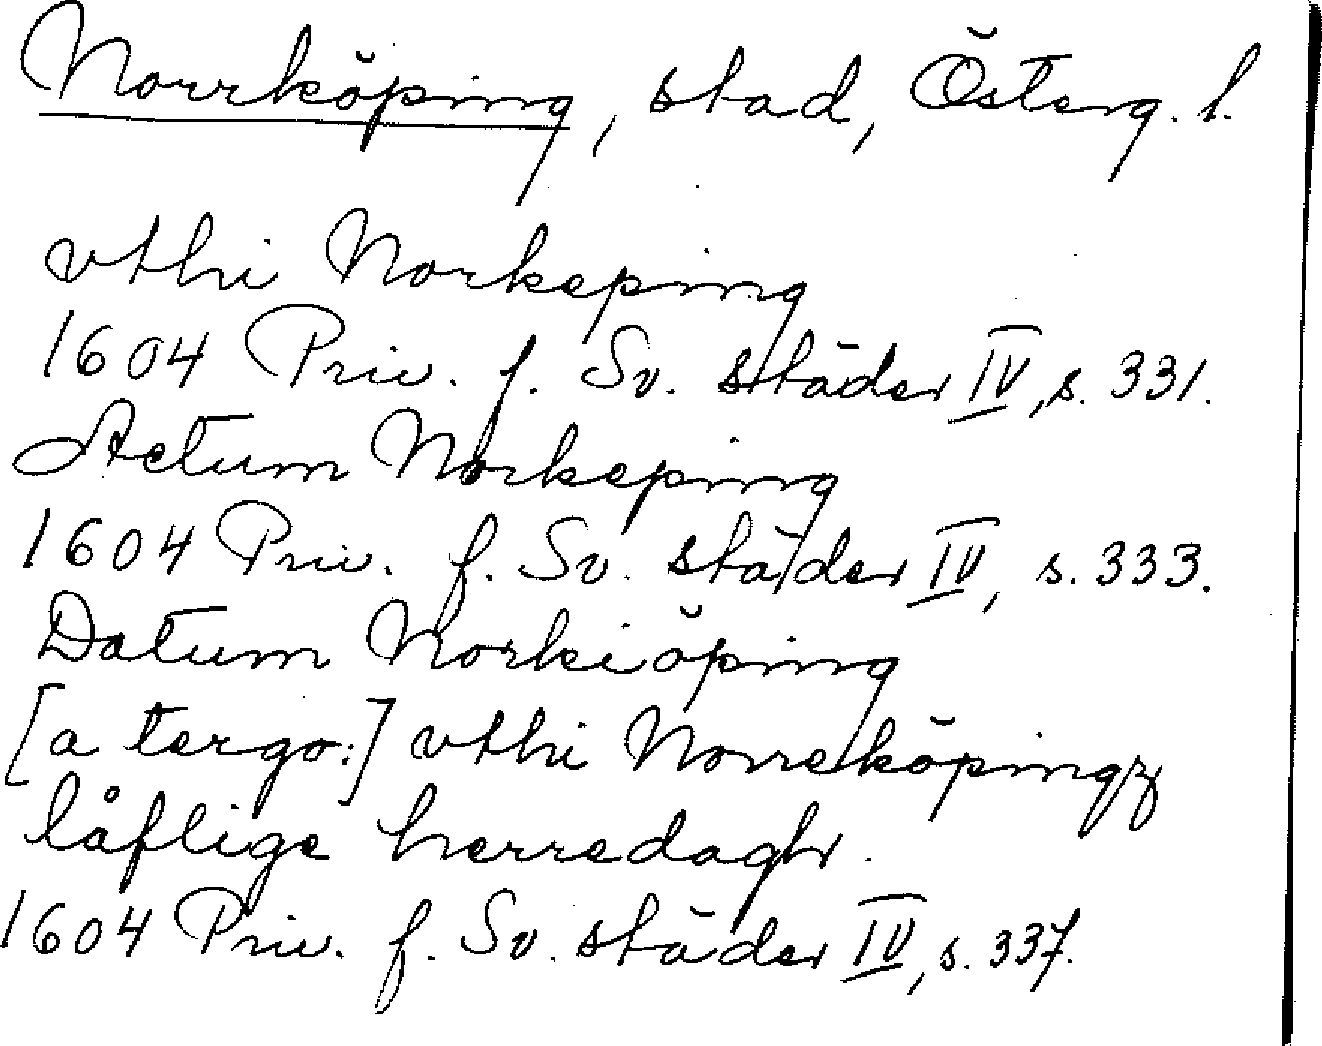 Norrköping, stad, Österg. l.
vthi Norkeping
1604 Priv. f. Sv. städer IV, s. 331.
Actum Norkeping
1604 Priv. f. Sv. städer IV, s. 333.
Datum Norkiöping
[a tergo:] vthi Norreköpingz
låflige herredagh.
1604 Priv. f. Sv. städer IV, s. 337.